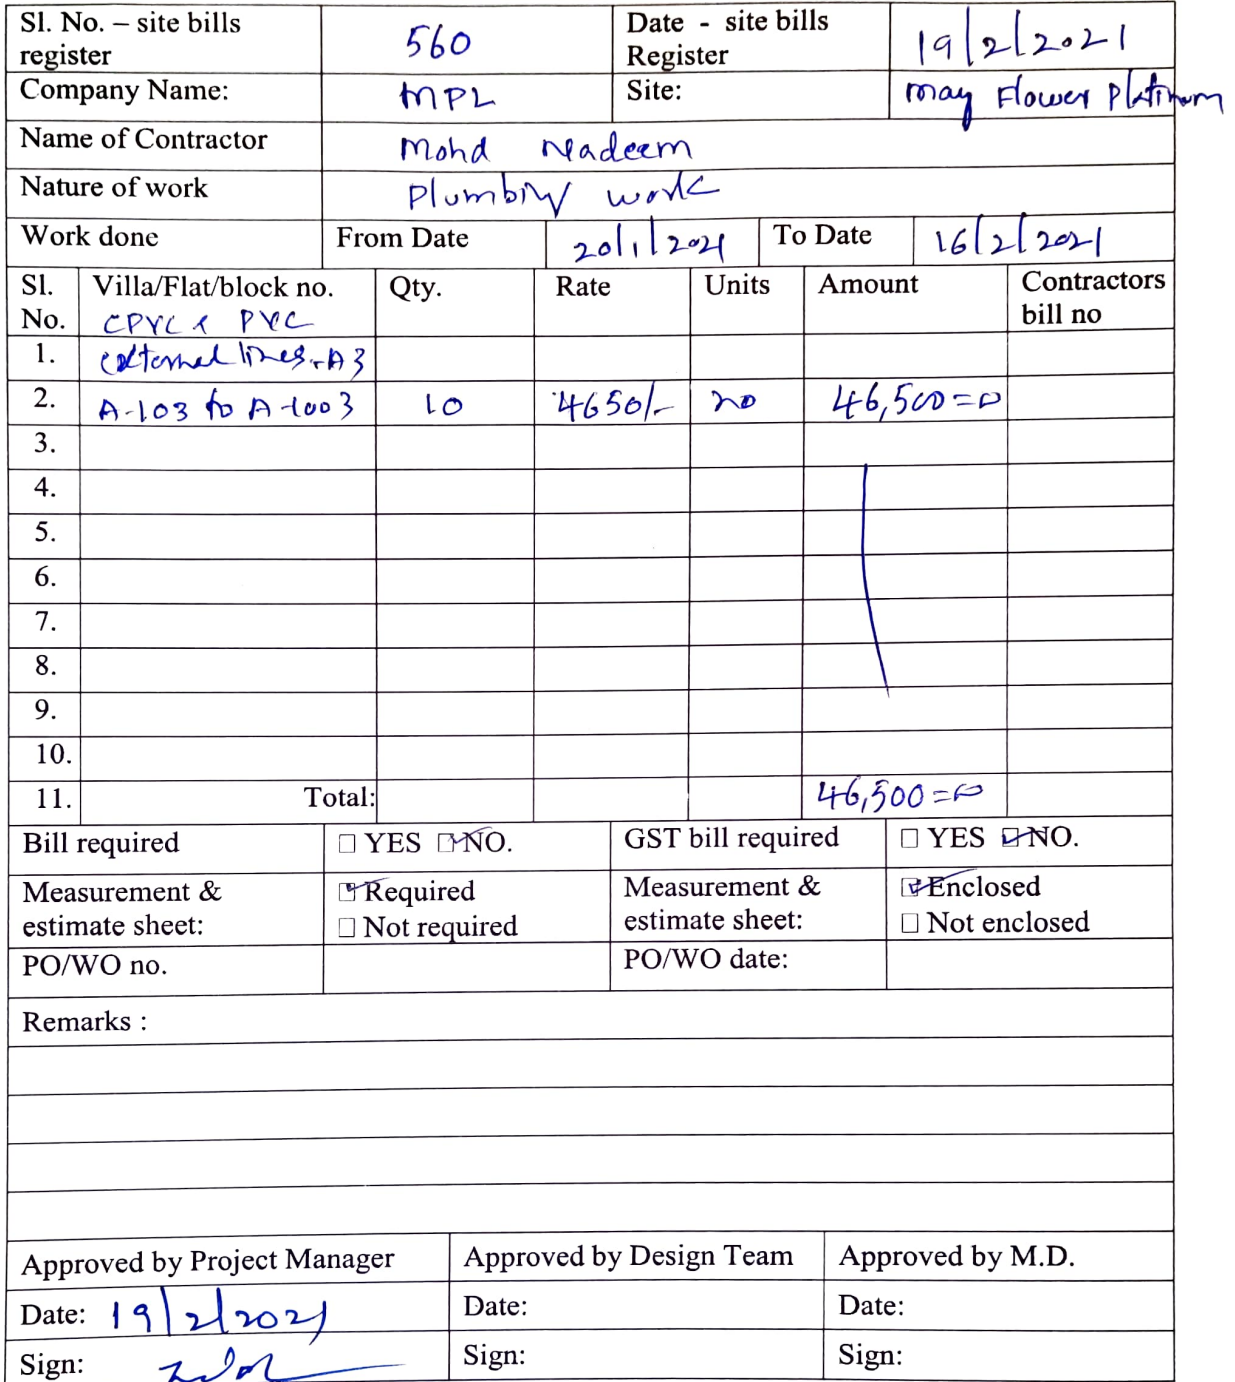 Sl. No. – site bills register 560 Date - site bills Register 19/2/2021
Company Name: MPL Site: may Flower Platinum
Name of Contractor Mohd Nadeem
Nature of work Plumbing work
Work done From Date 20/1/2021 To Date 16/2/2021
Sl. No. Villa/Flat/block no. Qty. Rate Units Amount Contractors bill no
CPVC & PVC
1. external lines - A3
2. A-103 to A-1003 10 4650/- no 46,500=00
3.
4.
5.
6.
7.
8.
9.
10.
11. Total: 46,500=00
Bill required ☐ YES ☑ NO. GST bill required ☐ YES ☑ NO.
Measurement & estimate sheet: ☑ Required Measurement & estimate sheet: ☑ Enclosed
☐ Not required ☐ Not enclosed
PO/WO no. PO/WO date:
Remarks :
Approved by Project Manager Approved by Design Team Approved by M.D.
Date: 19/2/2021 Date: Date:
Sign: Sign: Sign: